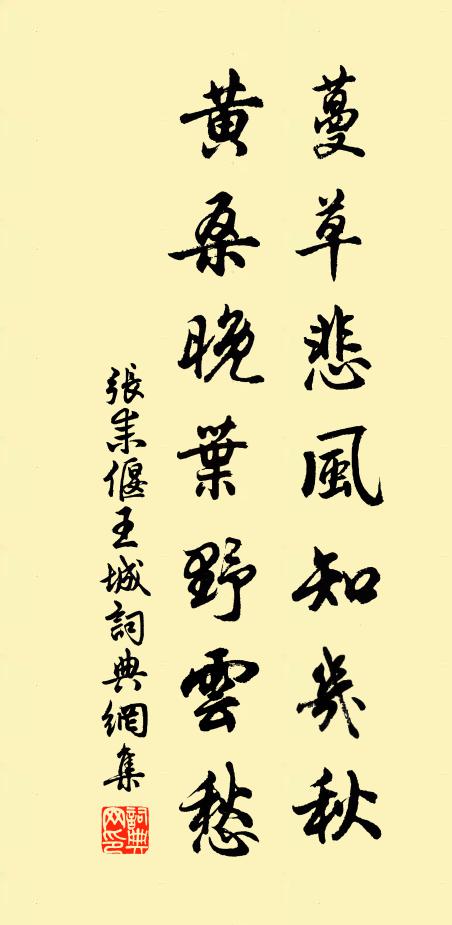 蔓草悲風知幾秋
黃桑晚葉野雲愁
張耒偃王城詞典網集
詞典網印